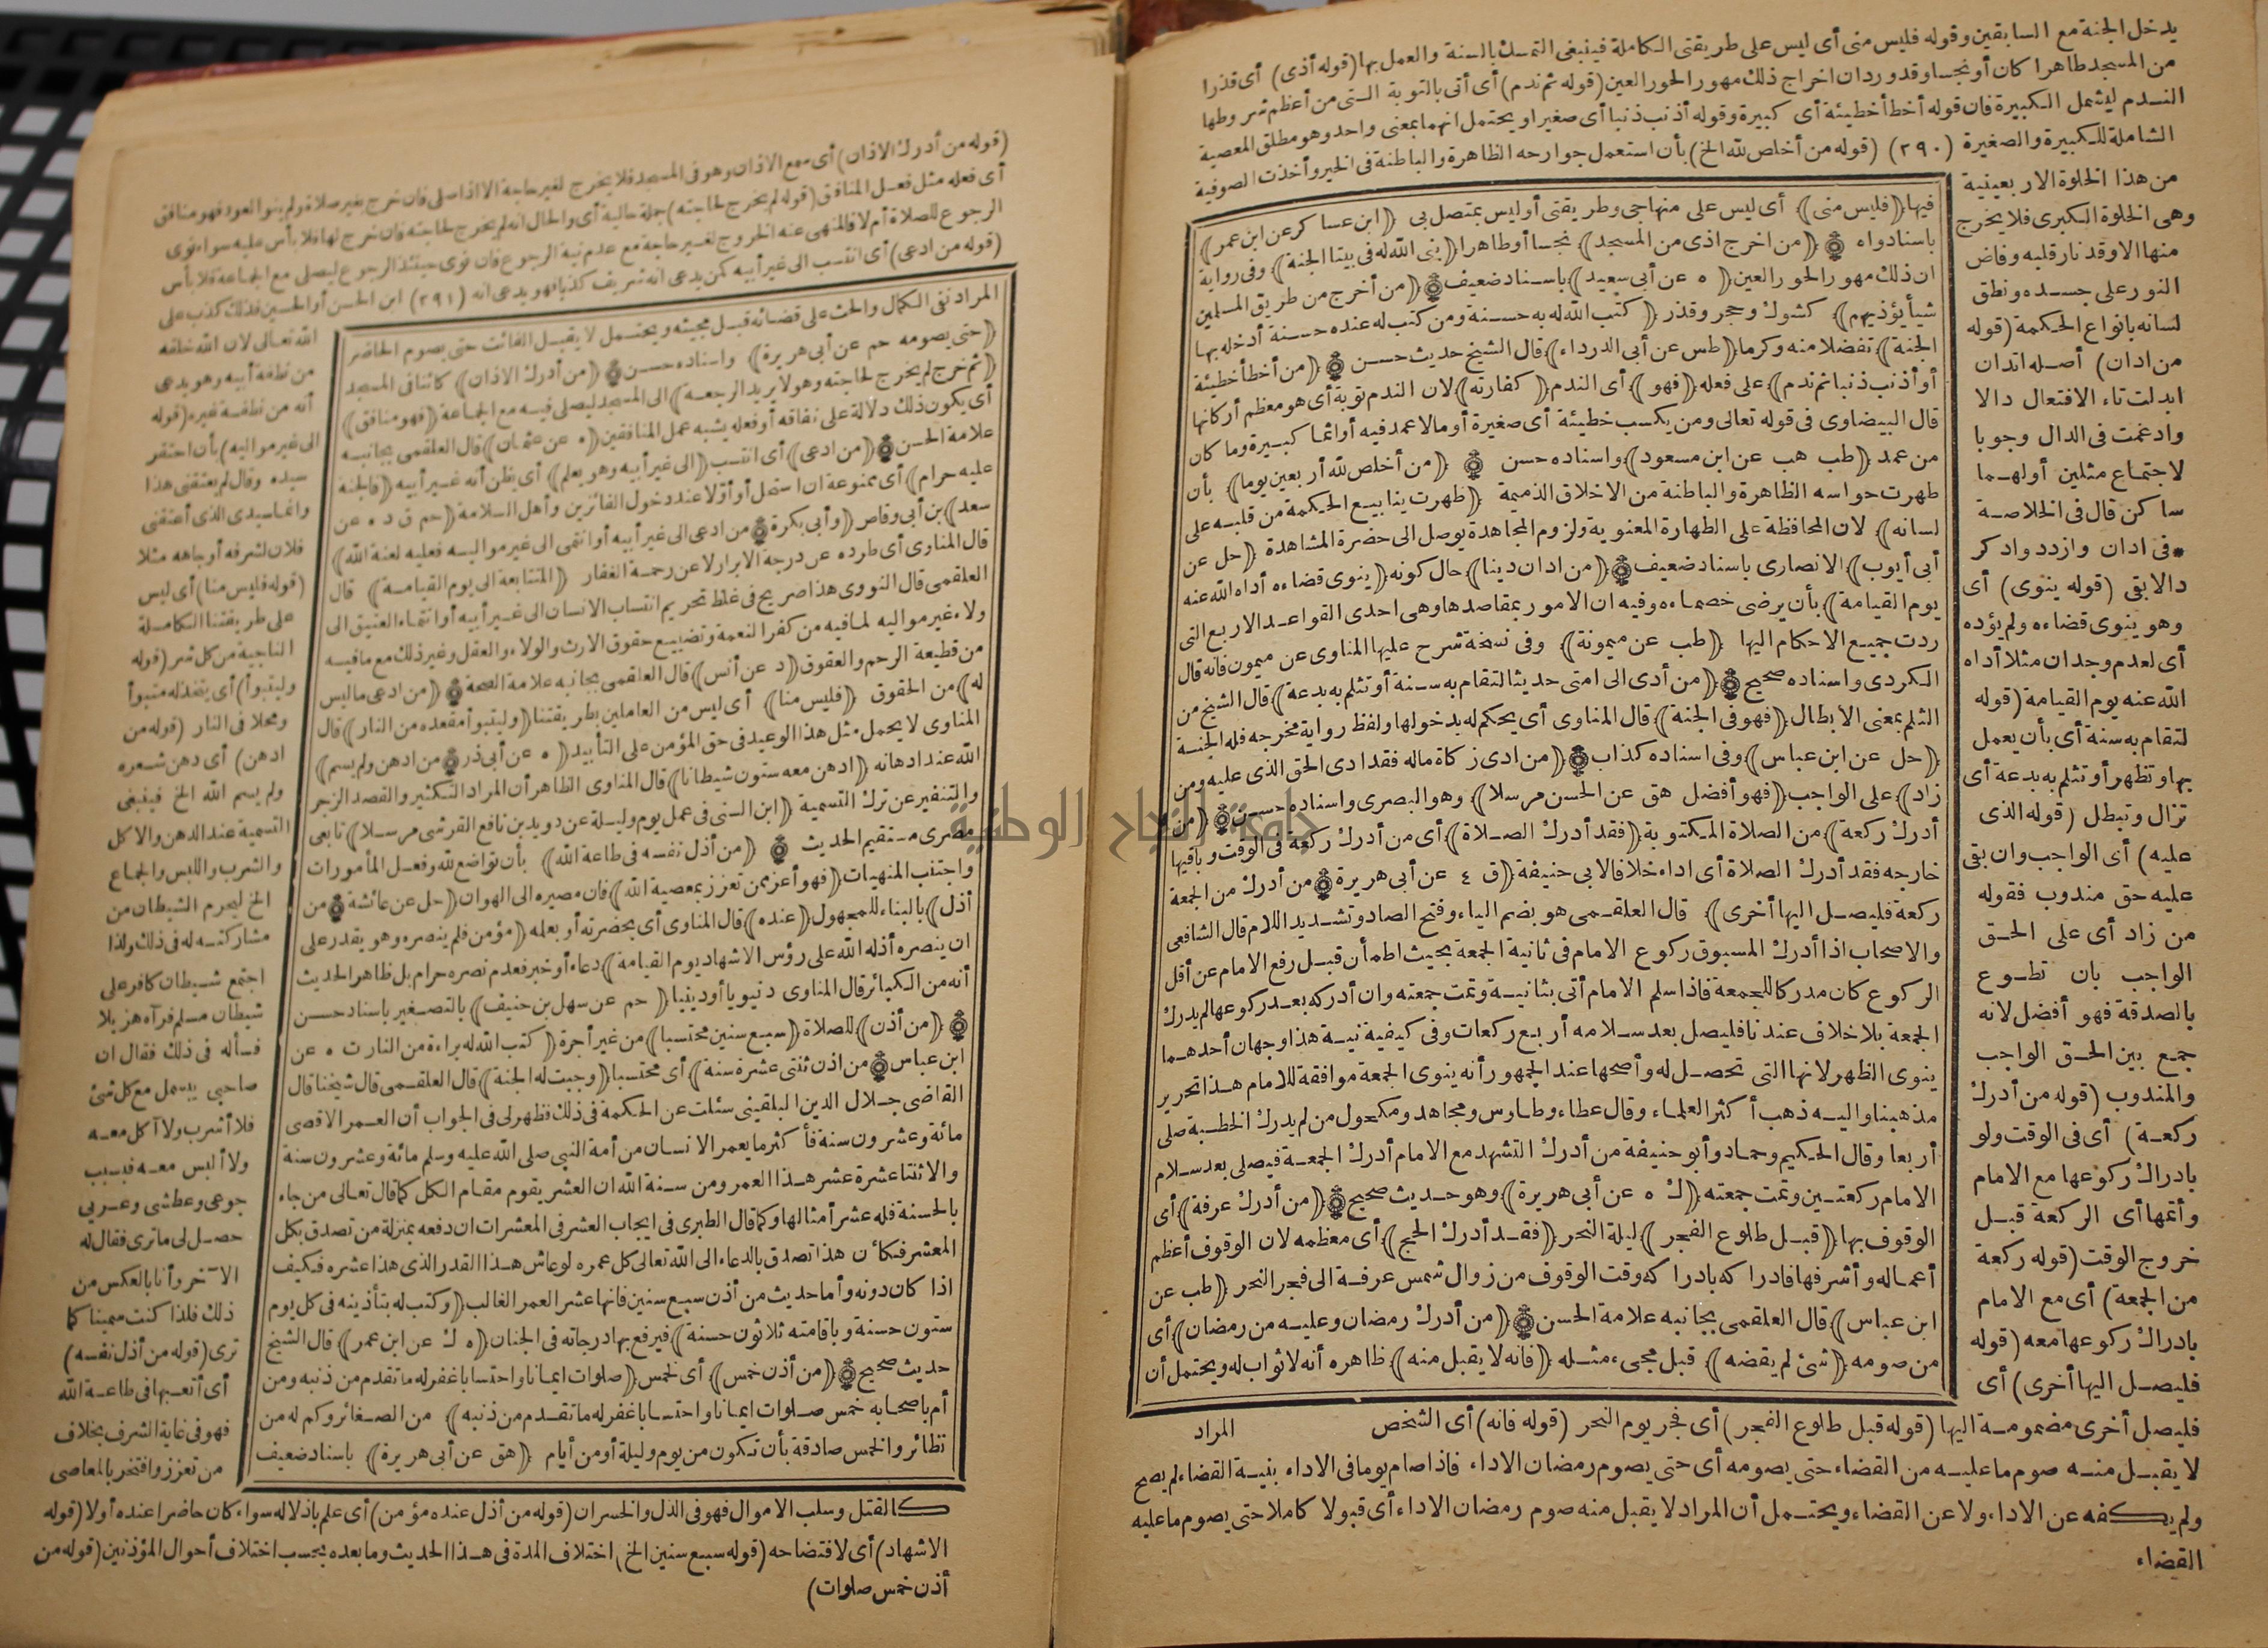 يدخل الجنة مع السابقين وقوله فليس منى أى ليس على طريقتى الكاملة فينبغى التمسك بالسنة والعمل بها (قوله أذى) أى قذرا
من المسجد طاهرا كان أو نجسا وقد ورد ان اخراج ذلك مهور الحور العين (قوله ثم ندم) أى أتى بالتوبة التى من أعظم شروطها
الندم ليشمل الكبيرة فان قوله أخطأ خطيئة أى كبيرة وقوله أذنب ذنبا أى صغيرا ويحتمل انهما بمعنى واحد وهو مطلق المعصية
الشاملة للكبيرة والصغيرة (٢٩٠) (قوله من أخلص لله الخ) بأن استعمل جوارحه الظاهرة والباطنة فى الخير وأخذت الصوفية
من هذا الخلوة الاربعينية
وهى الخلوة الكبرى فلا يخرج
منها الا وقد نار قلبه وفاض
النور على جسده ونطق
لسانه بانواع الحكمة (قوله
من ادان) أصله اتدان
ابدلت تاء الافتعال دالا
وادغمت فى الدال وجوبا
لاجتماع مثلين أولهما
ساكن قال فى الخلاصة
*فى ادان وازدد وادكر
دالا بقى (قوله ينوى) أى
وهو ينوى قضاءه ولم يؤده
أى لعدم وجدان مثلا أداه
الله عنه يوم القيامة (قوله
لتقام به سنة أى بأن يعمل
بها وتظهر أو تثلم به بدعة أى
تزال وتبطل (قوله الذى
عليه) أى الواجب وان بقى
عليه حق مندوب فقوله
من زاد أى على الحق
الواجب بان تطوع
بالصدقة فهو أفضل لانه
جمع بين الحق الواجب
والمندوب (قوله من أدرك
ركعة) أى فى الوقت ولو
بادراك ركوعها مع الامام
وأتمها أى الركعة قبل
خروج الوقت (قوله ركعة
من الجمعة) أى مع الامام
بادراك ركوعها معه (قوله
فليصل اليها أخرى) أى
فيها (فليس منى) أى ليس على منهاجى وطريقتى أو ليس بمتصل بى (ابن عساكر عن ابن عمر)
باسناد واه (من اخرج اذى من المسجد) نجسا أو طاهرا (بنى الله له فى بيتا الجنة) وفى رواية
ان ذلك مهور الحور العين (ه عن أبى سعيد) باسناد ضعيف (من أخرج من طريق المسلمين
شيأ يؤذيهم) كشوك وحجر وقذر (كتب الله له به حسنة ومن كتب له عنده حسنة أدخله بها
الجنة) تفضلا منه وكرما (طس عن أبى الدرداء) قال الشيخ حديث حسن (من أخطأ خطيئة
أو أذنب ذنبا ثم ندم) على فعله (فهو) أى الندم (كفارته) لان الندم توبة أى هو معظم أركانها
قال البيضاوى فى قوله تعالى ومن يكسب خطيئة أى صغيرة أو مالا عمد فيه أو اثما كبيرة وما كان
من عمد (طب هب عن ابن مسعود) واسناده حسن (من أخلص لله أربعين يوما) بأن
طهرت حواسه الظاهرة والباطنة من الاخلاق الذميمة (ظهرت ينابيع الحكمة من قلبه على
لسانه) لان المحافظة على الطهارة المعنوية ولزوم المجاهدة يوصل الى حضرة المشاهدة (حل عن
أبى أيوب) الانصارى باسناد ضعيف (من ادان دينا) حال كونه (ينوى قضاءه أداه الله عنه
يوم القيامة) بأن يرضى خصماءه وفيه ان الامور بمقاصدها وهى احدى القواعد الاربع التى
ردت جميع الاحكام اليها (طب عن ميمونة) وفى نسخة شرح عليها المناوى عن ميمون فانه قال
الكردى واسناده صحيح (من أدى الى امتى حديثا لتقام به سنة أو تثلم به بدعة) قال الشيخ من
الثلم بمعنى الابطال (فهو فى الجنة) قال المناوى أى يحكم له بدخولها ولفظ رواية مخرجه فله الجنة
(حل عن ابن عباس) وفى اسناده كذاب (من ادى زكاة ماله فقد ادى الحق الذى عليه ومن
زاد) على الواجب (فهو أفضل هق عن الحسن مرسلا) وهو البصرى واسناده حسن (من
أدرك ركعة) من الصلاة المكتوبة (فقد أدرك الصلاة) أى من أدرك ركعة فى الوقت وباقيها
خارجه فقد أدرك الصلاة أى اداء خلافا لابى حنيفة (ق ٤ عن أبى هريرة من أدرك من الجمعة
ركعة فليصل اليها أخرى) قال العلقمى هو بضم الياء وفتح الصاد وتشديد اللام قال الشافعى
والاصحاب اذا أدرك المسبوق ركوع الامام فى ثانية الجمعة بحيث اطمأن قبل رفع الامام عن أقل
الركوع كان مدركا للجمعة فاذا سلم الامام أتى بثانية وتمت جمعته وان أدركه بعد ركوعها لم يدرك
الجمعة بلا خلاف عندنا فليصل بعد سلامه أربع ركعات وفى كيفية نية هذا وجهان أحدهما
ينوى الظهر لانها التى تحصل له وأصحها عند الجمهور أنه ينوى الجمعة موافقة للامام هذا تحرير
مذهبنا واليه ذهب أكثر العلماء وقال عطاء وطاوس ومجاهد ومكحول من لم يدرك الخطبة صلى
أربعا وقال الحكيم وحماد وأبو حنيفة من أدرك التشهد مع الامام أدرك الجمعة فيصلى بعد سلام
الامام ركعتين وتمت جمعته (ك ه عن أبى هريرة) وهو حديث صحيح (من أدرك عرفة) أى
الوقوف بها (قبل طلوع الفجر) ليلة النحر (فقد أدرك الحج) أى معظمه لان الوقوف أعظم
أعماله وأشرفها فادراكه بادراكه وقت الوقوف من زوال شمس عرفة الى فجر النحر (طب عن
ابن عباس) قال العلقمى بجانبه علامة الحسن (من أدرك رمضان وعليه من رمضان) أى
من صومه (شئ لم يقضه) قبل مجىء مثله (فانه لا يقبل منه) ظاهره أنه لا ثواب له ويحتمل أن
المراد
فليصل أخرى مضمومة اليها (قوله قبل طلوع الفجر) أى فجر يوم النحر (قوله فانه) أى الشخص
لا يقبل منه صوم ما عليه من القضاء حتى يصومه أى حتى يصوم رمضان الاداء فاذا صام يوما فى الاداء بنية القضاء لم يصح
ولم يكفه عن الاداء ولا عن القضاء ويحتمل أن المراد لا يقبل منه صوم رمضان الاداء أى قبولا كاملا حتى يصوم ما عليه
القضاء
(قوله من أدرك الاذان) أى سمع الاذان وهو فى المسجد فلا يخرج لغير حاجة الا اذا صلى فان خرج بغير صلاة ولم ينو العود فهو منافق
أى فعله مثل فعل المنافق (قوله لم يخرج لحاجته) جملة حالية أى والحال انه لم يخرج لحاجته فان خرج لها فلا بأس عليه سواء نوى
الرجوع للصلاة أم لا فالمنهى عنه الخروج لغير حاجة مع عدم نية الرجوع فان نوى حينئذ الرجوع ليصلى مع الجماعة فلا بأس
(قوله من ادعى) أى انتسب الى غير أبيه كمن يدعى انه شريف كذبا فهو يدعى انه (٢٩١) ابن الحسن أو الحسين فذلك كذب على
المراد نفى الكمال والحث على قضائه قبل مجيئه ويحتمل لا يقبل الفائت حتى يصوم الحاضر
(حتى يصومه حم عن أبى هريرة) واسناده حسن (من أدرك الاذان) كائنا فى المسجد
(ثم خرج لم يخرج لحاجته وهو لا يريد الرجعة) الى المسجد ليصلى فيه مع الجماعة (فهو منافق)
أى يكون ذلك دلالة على نفاقه أو فعله يشبه عمل المنافقين (ه عن عثمان) قال العلقمى بجانبه
علامة الحسن (من ادعى) أى انتسب (الى غير أبيه وهو يعلم) أى يظن أنه غير أبيه (فالجنة
عليه حرام) أى ممنوعة ان استحل أو أوّلا عند دخول الفائزين وأهل السلامة (حم ق د ه عن
سعد) بن أبى وقاص (وأبى بكرة من ادعى الى غير أبيه أو انتمى الى غير مواليه فعليه لعنة الله)
قال المناوى أى طرده عن درجة الابرار لا عن رحمة الغفار (المتتابعة الى يوم القيامة) قال
العلقمى قال النووى هذا صريح فى غلظ تحريم انتساب الانسان الى غير أبيه أو انتماء العتيق الى
ولاء غير مواليه لما فيه من كفر النعمة وتضييع حقوق الارث والولاء والعقل وغير ذلك مع ما فيه
من قطيعة الرحم والعقوق (د عن أنس) قال العلقمى بجانبه علامة الصحة (من ادعى ما ليس
له) من الحقوق (فليس منا) أى ليس من العاملين بطريقتنا (وليتبوأ مقعده من النار) قال
المناوى لا يحمل مثل هذا الوعيد فى حق المؤمن على التأبيد (ه عن أبى ذر من ادهن ولم يسم)
الله عند ادهانه (ادهن معه ستون شيطانا) قال المناوى الظاهر أن المراد التكثير والقصد الزجر
والتنفير عن ترك التسمية (ابن السنى فى عمل يوم وليلة عن دويد بن نافع القرشى مرسلا) تابعى
مصرى مستقيم الحديث (من أذل نفسه فى طاعة الله) بأن تواضع لله وفعل المأمورات
واجتنب المنهيات (فهو أعز ممن تعزز بمعصية الله) فان مصيره الى الهوان (حل عن عائشة من
أذل) بالبناء للمجهول (عنده) قال المناوى أى بحضرته أو بعلمه (مؤمن فلم ينصره وهو يقدر على
ان ينصره أذله الله على رؤس الاشهاد يوم القيامة) دعاء أو خبر فعدم نصره حرام بل ظاهر الحديث
أنه من الكبائر قال المناوى دنيويا أو دينيا (حم عن سهل بن حنيف) بالتصغير باسناد حسن
(من أذن) للصلاة (سبع سنين محتسبا) من غير أجرة (كتب الله له براءة من النار ت ه عن
ابن عباس من اذن ثنتى عشرة سنة) أى محتسبا (وجبت له الجنة) قال العلقمى قال شيخنا قال
القاضى جلال الدين البلقينى سئلت عن الحكمة فى ذلك فظهر لى فى الجواب أن العمر الاقصى
مائة وعشرون سنة فأكثر ما يعمر الانسان من أمة النبى صلى الله عليه وسلم مائة وعشرون سنة
والاثنتا عشرة عشر هذا العمر ومن سنة الله ان العشر يقوم مقام الكل كما قال تعالى من جاء
بالحسنة فله عشر أمثالها وكما قال الطبرى فى ايجاب العشر فى المعشرات ان دفعه بمنزلة من تصدق بكل
المعشر فكأن هذا تصدق بالدعاء الى الله تعالى كل عمره لو عاش هذا القدر الذى هذا عشره فكيف
اذا كان دونه وأما حديث من أذن سبع سنين فانها عشر العمر الغالب (وكتب له بتأذينه فى كل يوم
ستون حسنة وباقامته ثلاثون حسنة) فيرفع بها درجاته فى الجنان (ه ك عن ابن عمر) قال الشيخ
حديث صحيح (من أذن خمس) أى لخمس (صلوات ايمانا واحتسابا غفر له ما تقدم من ذنبه ومن
أم باصحابه خمس صلوات ايمانا واحتسابا غفر له ما تقدم من ذنبه) من الصغائر وكم له من
نظائر والخمس صادقة بأن تكون من يوم وليلة أو من أيام (هق عن أبى هريرة) باسناد ضعيف
الله تعالى لان الله خلقه
من نطفة أبيه وهو يدعى
أنه من نطفة غيره (قوله
الى غير مواليه) بأن احتقر
سيده وقال لم يعتقنى هذا
وانما سيدى الذى أعتقنى
فلان لشرفه أو جاهه مثلا
(قوله فليس منا) أى ليس
على طريقتنا الكاملة
الناجية من كل شر (قوله
وليتبوأ) أى يتخذ له متبوأ
ومحلا فى النار (قوله من
ادهن) أى دهن شعره
ولم يسم الله الخ فينبغى
التسمية عند الدهن والاكل
والشرب واللبس والجماع
الخ ليحرم الشيطان من
مشاركته له فى ذلك ولذا
اجتمع شيطان كافر على
شيطان مسلم فرآه هزيلا
فسأله فى ذلك فقال ان
صاحبى يبسمل مع كل شئ
فلا أشرب ولا آكل معه
ولا ألبس معه فبسبب
جوعى وعطشى وعربى
حصل لى ما ترى فقال له
الآخر وأنا بالعكس من
ذلك فلذا كنت سمينا كما
ترى (قوله من أذل نفسه)
أى أتعبها فى طاعة الله
فهو فى غاية الشرف بخلاف
من تعزز وافتخر بالمعاصى
كالقتل وسلب الاموال فهو فى الذل والخسران (قوله من أذل عنده مؤمن) أى علم باذلاله سواء كان حاضرا عنده أولا (قوله
الاشهاد) أى لافتضاحه (قوله سبع سنين الخ) اختلاف المدة فى هذا الحديث وما بعده بحسب اختلاف أحوال المؤذنين (قوله من
أذن خمس صلوات)
جامعة النجاح الوطنية